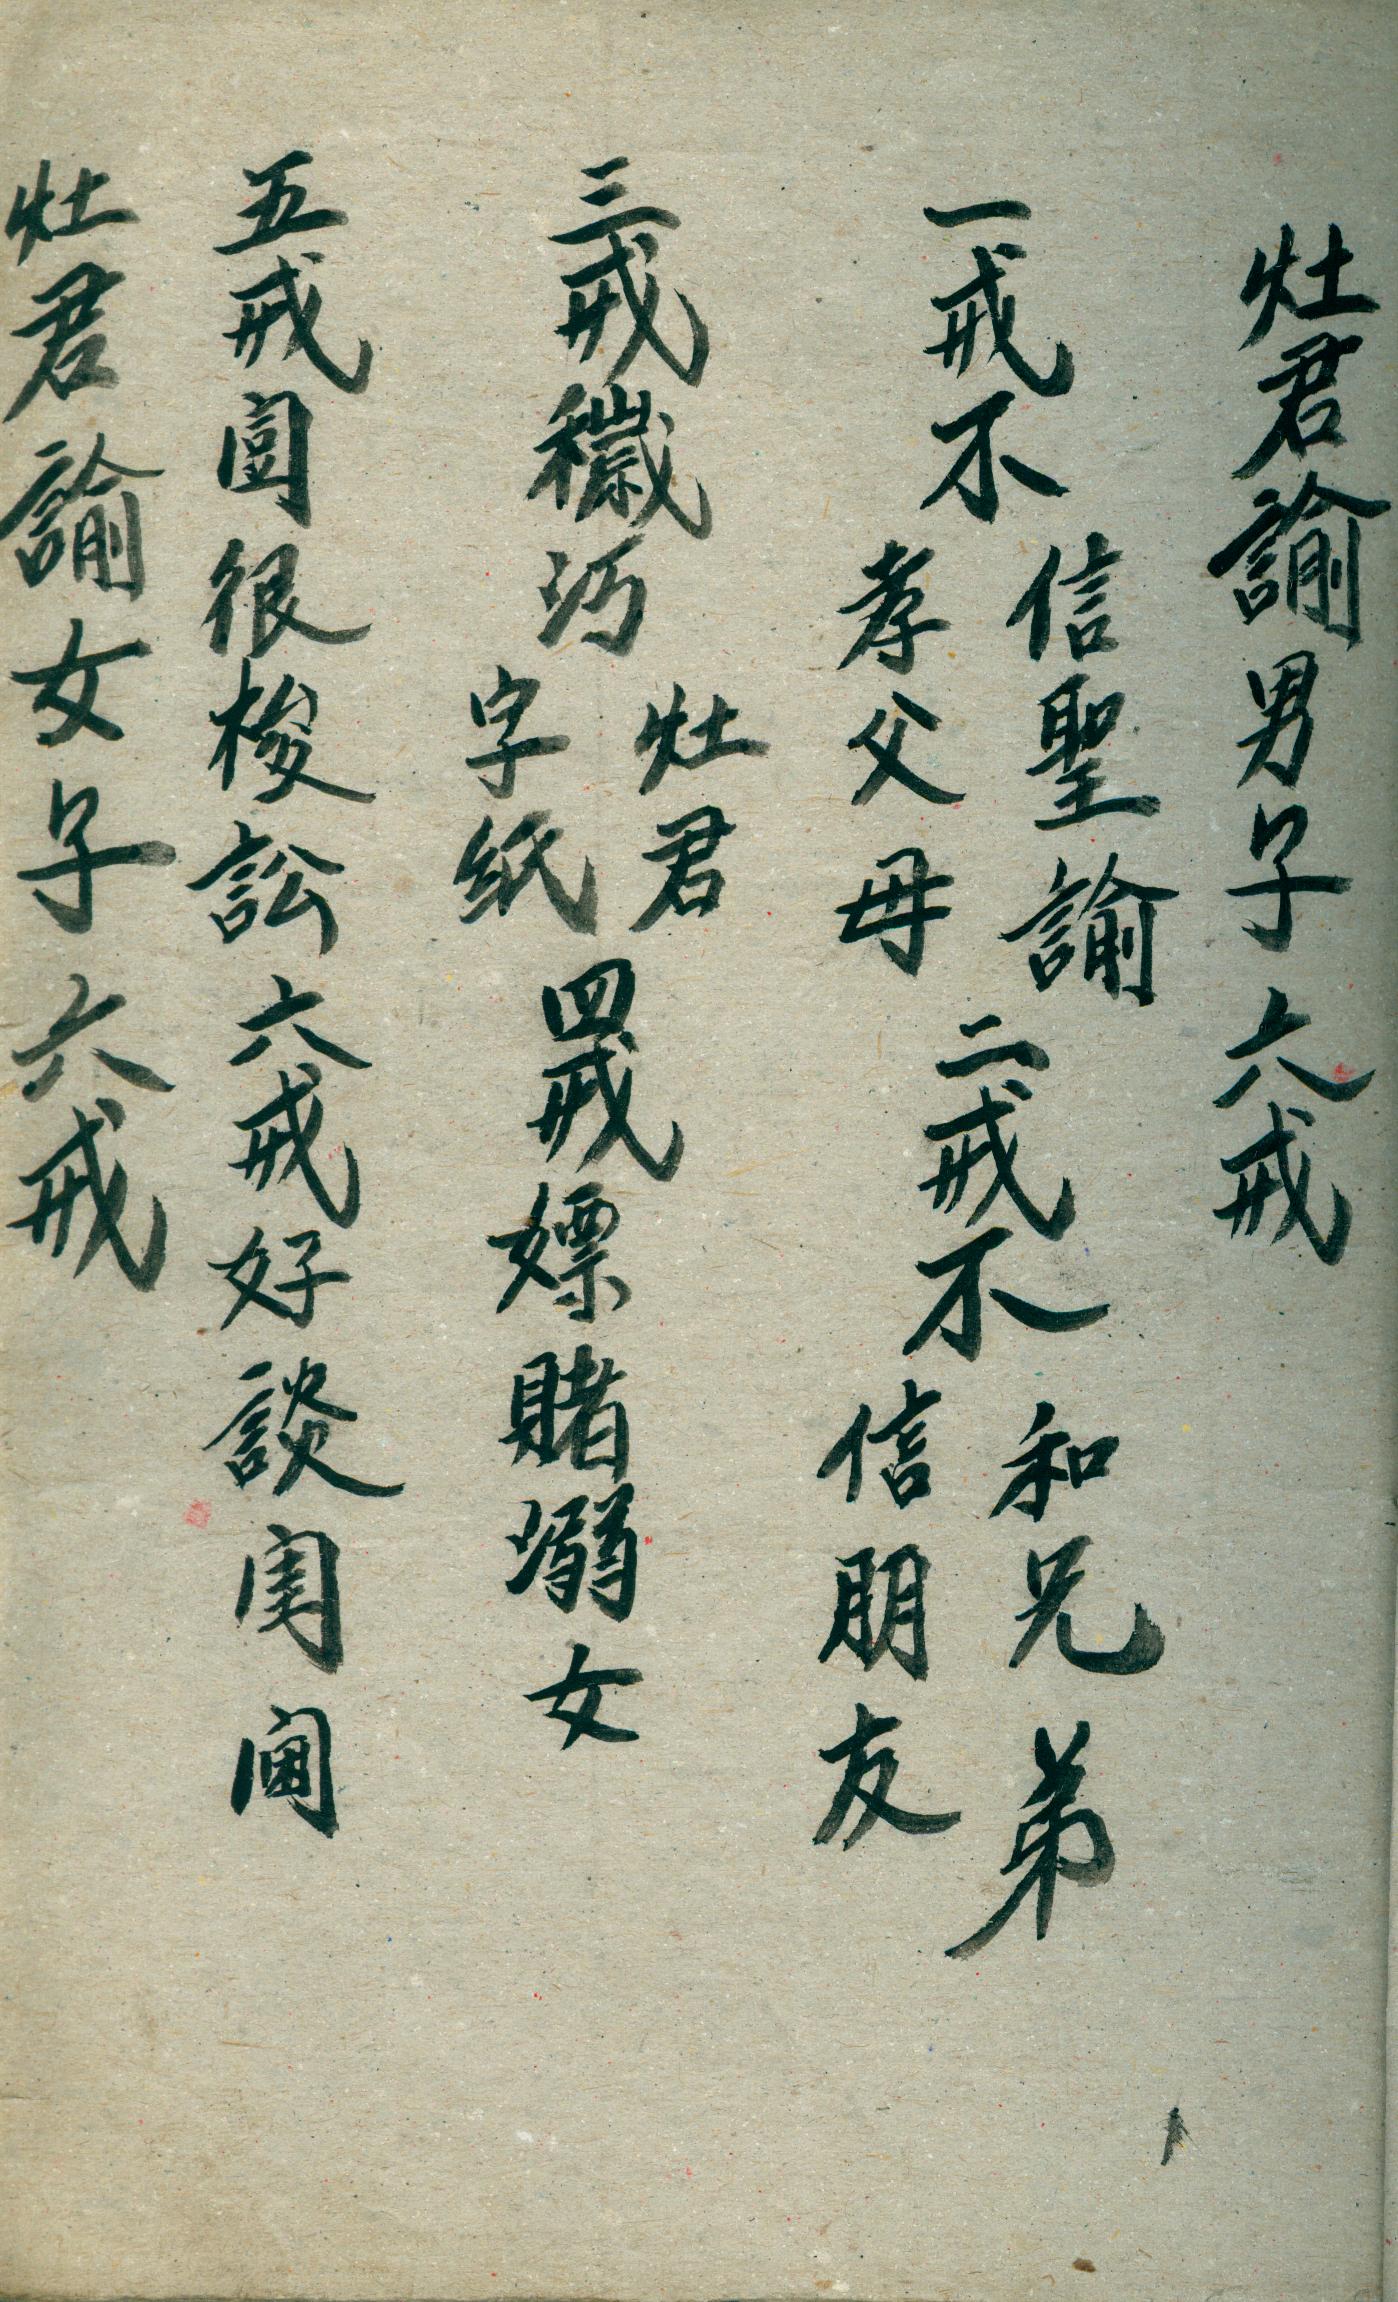 灶君諭男子六戒
一戒不
信聖諭
孝父母
二戒不
和兄弟
信朋友
三戒穢汚
灶君
字紙
四戒嫖賭溺女
五戒鬥很梭訟六戒好談閨閫
灶君諭女子六戒